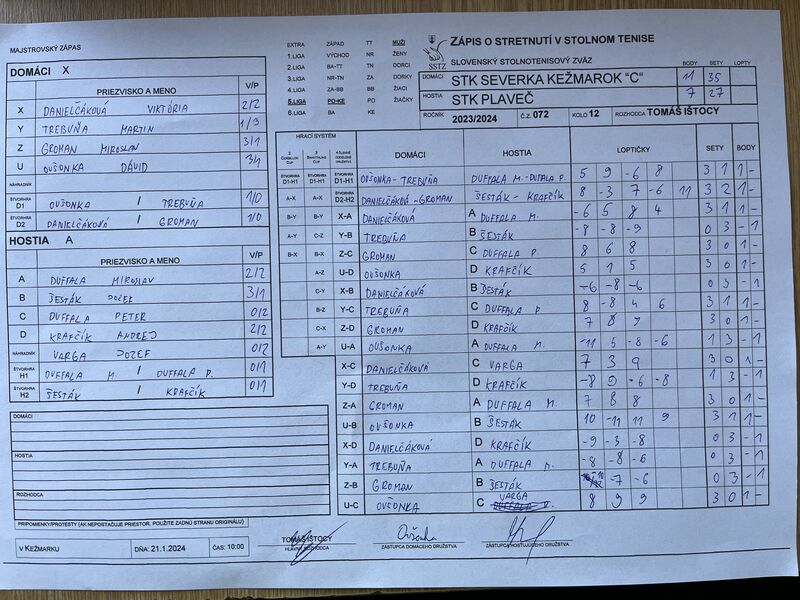 MAJSTROVSKÝ ZÁPAS
EXTRA ZÁPAD TT MUŽI
1.LIGA VÝCHOD NR ŽENY
2.LIGA BA-TT TN DORCI
3.LIGA NR-TN ZA DORKY
4.LIGA ZA-BB BB ŽIACI
5.LIGA PO-KE PO ŽIAČKY
6.LIGA BA KE
SSTZ
ZÁPIS O STRETNUTÍ V STOLNOM TENISE
SLOVENSKÝ STOLNOTENISOVÝ ZVÄZ
BODY SETY LOPTY
DOMÁCI STK SEVERKA KEŽMAROK "C" 11 35
HOSTIA STK PLAVEČ 7 27
ROČNÍK 2023/2024 Č.Z. 072 KOLO 12 ROZHODCA TOMÁŠ IŠTOCY
DOMÁCI X
PRIEZVISKO A MENO V/P
X DANIELČÁKOVÁ VIKTÓRIA 2/2
Y TREBUŇA MARTIN 1/3
Z GROMAN MIROSLAV 3/1
U OVŠONKA DÁVID 3/1
NÁHRADNÍK
ŠTVORHRA D1 OVŠONKA / TREBUŇA 1/0
ŠTVORHRA D2 DANIELČÁKOVÁ / GROMAN 1/0
HOSTIA A
PRIEZVISKO A MENO V/P
A DUFFALA MIROSLAV 2/2
B ŠESTÁK JOZEF 3/1
C DUFFALA PETER 0/2
D KRAFČÍK ANDREJ 2/2
NÁHRADNÍK VARGA JOZEF 0/2
ŠTVORHRA H1 DUFFALA M. / DUFFALA P. 0/1
ŠTVORHRA H2 ŠESTÁK / KRAFČÍK 0/1
DOMÁCI
HOSTIA
ROZHODCA
PRIPOMIENKY/PROTESTY (AK NEPOSTAČUJE PRIESTOR, POUŽITE ZADNÚ STRANU ORIGINÁLU)
V KEŽMARKU DŇA: 21.1.2024 ČAS: 10:00
HRACÍ SYSTÉM DOMÁCI HOSTIA LOPTIČKY SETY BODY
ŠTVORHRA D1-H1 ŠTVORHRA D1-H1 ŠTVORHRA D1-H1 OVŠONKA - TREBUŇA DUFFALA M. - DUFALA P. 5 9 -6 8 3 1 1 -
A-X A-X ŠTVORHRA D2-H2 DANIELČÁKOVÁ - GROMAN ŠESTÁK - KRAFČÍK 8 -3 7 -6 11 3 2 1 -
B-Y B-Y X-A DANIELČÁKOVÁ A DUFFALA M. -6 5 8 4 3 1 1 -
A-Y C-Z Y-B TREBUŇA B ŠESTÁK -8 -8 -9 0 3 - 1
B-X B-X Z-C GROMAN C DUFFALA P. 8 6 8 3 0 1 -
A-Z U-D OVŠONKA D KRAFČÍK 5 1 5 3 0 1 -
C-Y X-B DANIELČÁKOVÁ B ŠESTÁK -6 -8 -6 0 3 - 1
B-Z Y-C TREBUŇA C DUFFALA P. 8 -8 4 6 3 1 1 -
C-X Z-D GROMAN D KRAFČÍK 7 8 7 3 0 1 -
A-Y U-A OVŠONKA A DUFFALA M. -11 5 -8 -6 1 3 - 1
X-C DANIELČÁKOVÁ C VARGA 7 3 9 3 0 1 -
Y-D TREBUŇA D KRAFČÍK -8 9 -6 -8 1 3 - 1
Z-A GROMAN A DUFFALA M. 7 8 8 3 0 1 -
U-B OVŠONKA B ŠESTÁK 10 -11 11 9 3 1 1 -
X-D DANIELČÁKOVÁ D KRAFČÍK -9 -3 -8 0 3 - 1
Y-A TREBUŇA A DUFFALA M. -8 -8 -6 0 3 - 1
Z-B GROMAN B ŠESTÁK -7 -6 0 3 - 1
U-C OVŠONKA C VARGA 8 9 9 3 0 1 -
TOMÁŠ IŠTOCY
HLAVNÝ ROZHODCA
Ovšonka
ZÁSTUPCA DOMÁCEHO DRUŽSTVA
ZÁSTUPCA HOSŤUJÚCEHO DRUŽSTVA